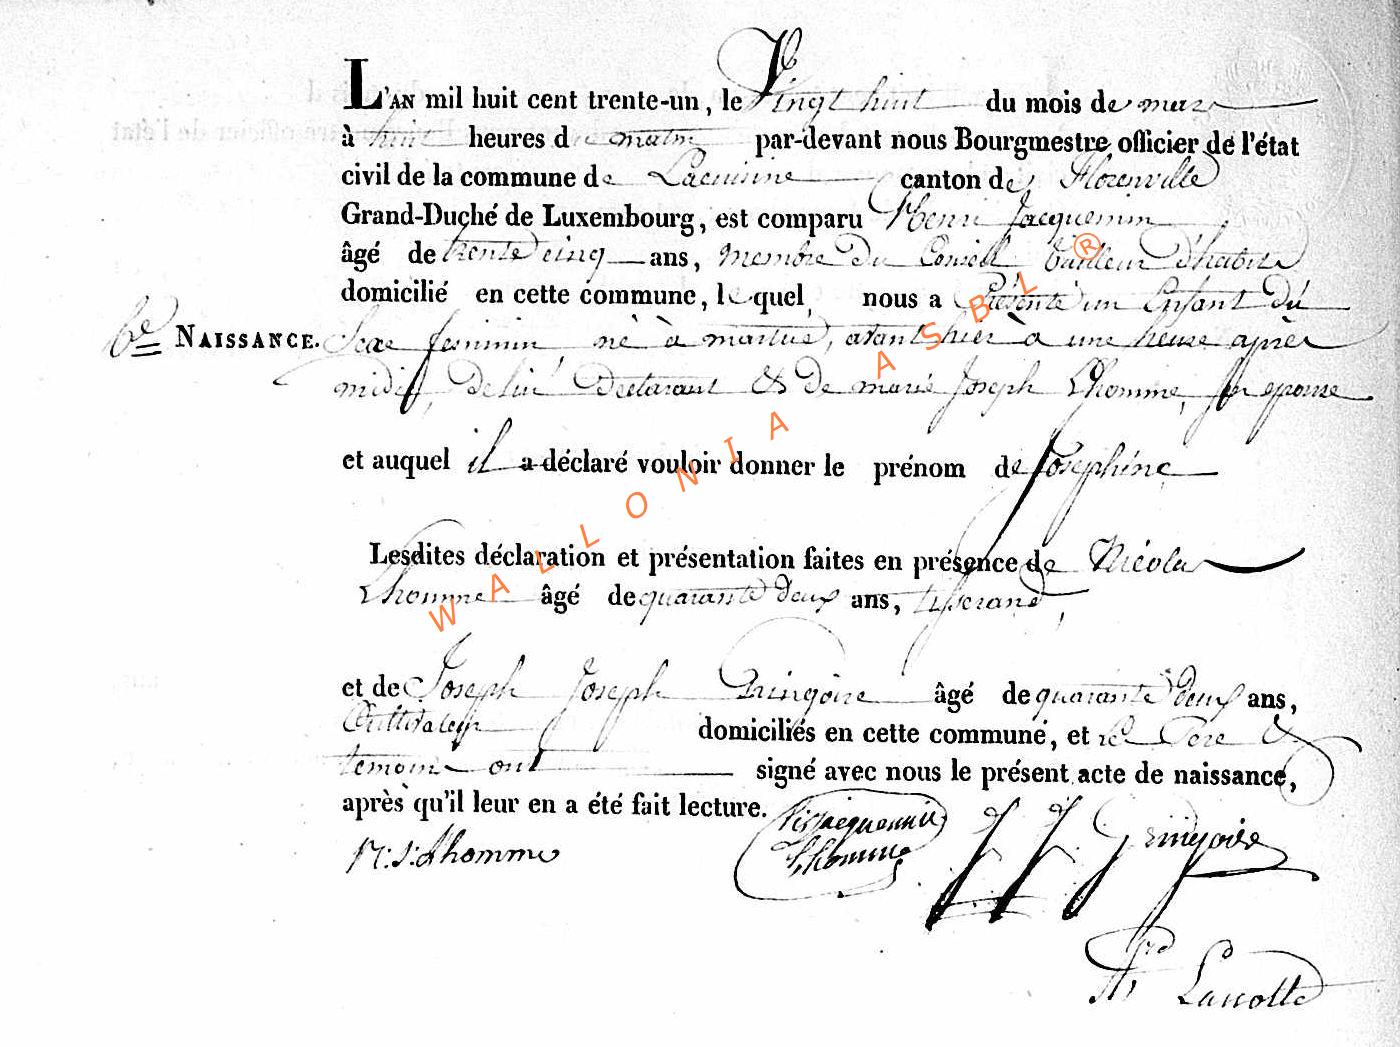 L'AN mil huit cent trente-un, le Vingt huit du mois de mars
à huit heures de matin par-devant nous Bourgmestre officier de l'état
civil de la commune de Lacuisine canton de Florenville
Grand-Duché de Luxembourg, est comparu Henri Jacquemin
âgé de trente cinq ans, membre du Conseil tailleur d'habits
domicilié en cette commune, lequel, nous a Présenté un Enfant du
6e NAISSANCE. Sexe feminin, né à martué, avant hier à une heure après
midi, de lui Déclarant & de marie Joseph Lhomme, son epouse
et auquel il a déclaré vouloir donner le prénom de Joséphine
Lesdites déclaration et présentation faites en présence de Nicolas
Lhomme âgé de quarante deux ans, tisserand,
et de Joseph Joseph Gringoire âgé de quarante deux ans,
Cultivateur domiciliés en cette commune, et le Père &
temoins ont signé avec nous le présent acte de naissance,
après qu'il leur en a été fait lecture.
N: J: Lhomme Jacquemin Lhomme J J Gringoire
Lanotte
WALLONIA ASBL ®